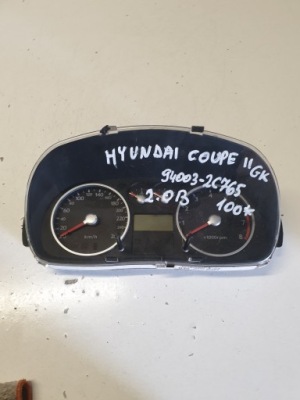 HYUNDAI COUPE II GK
94003-2C765
2.0B 100k
km/h
x1000rpm